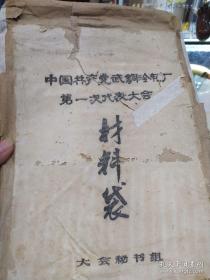 中国共产党武钢冷轧厂
第一次代表大会
材料袋
大会秘书组